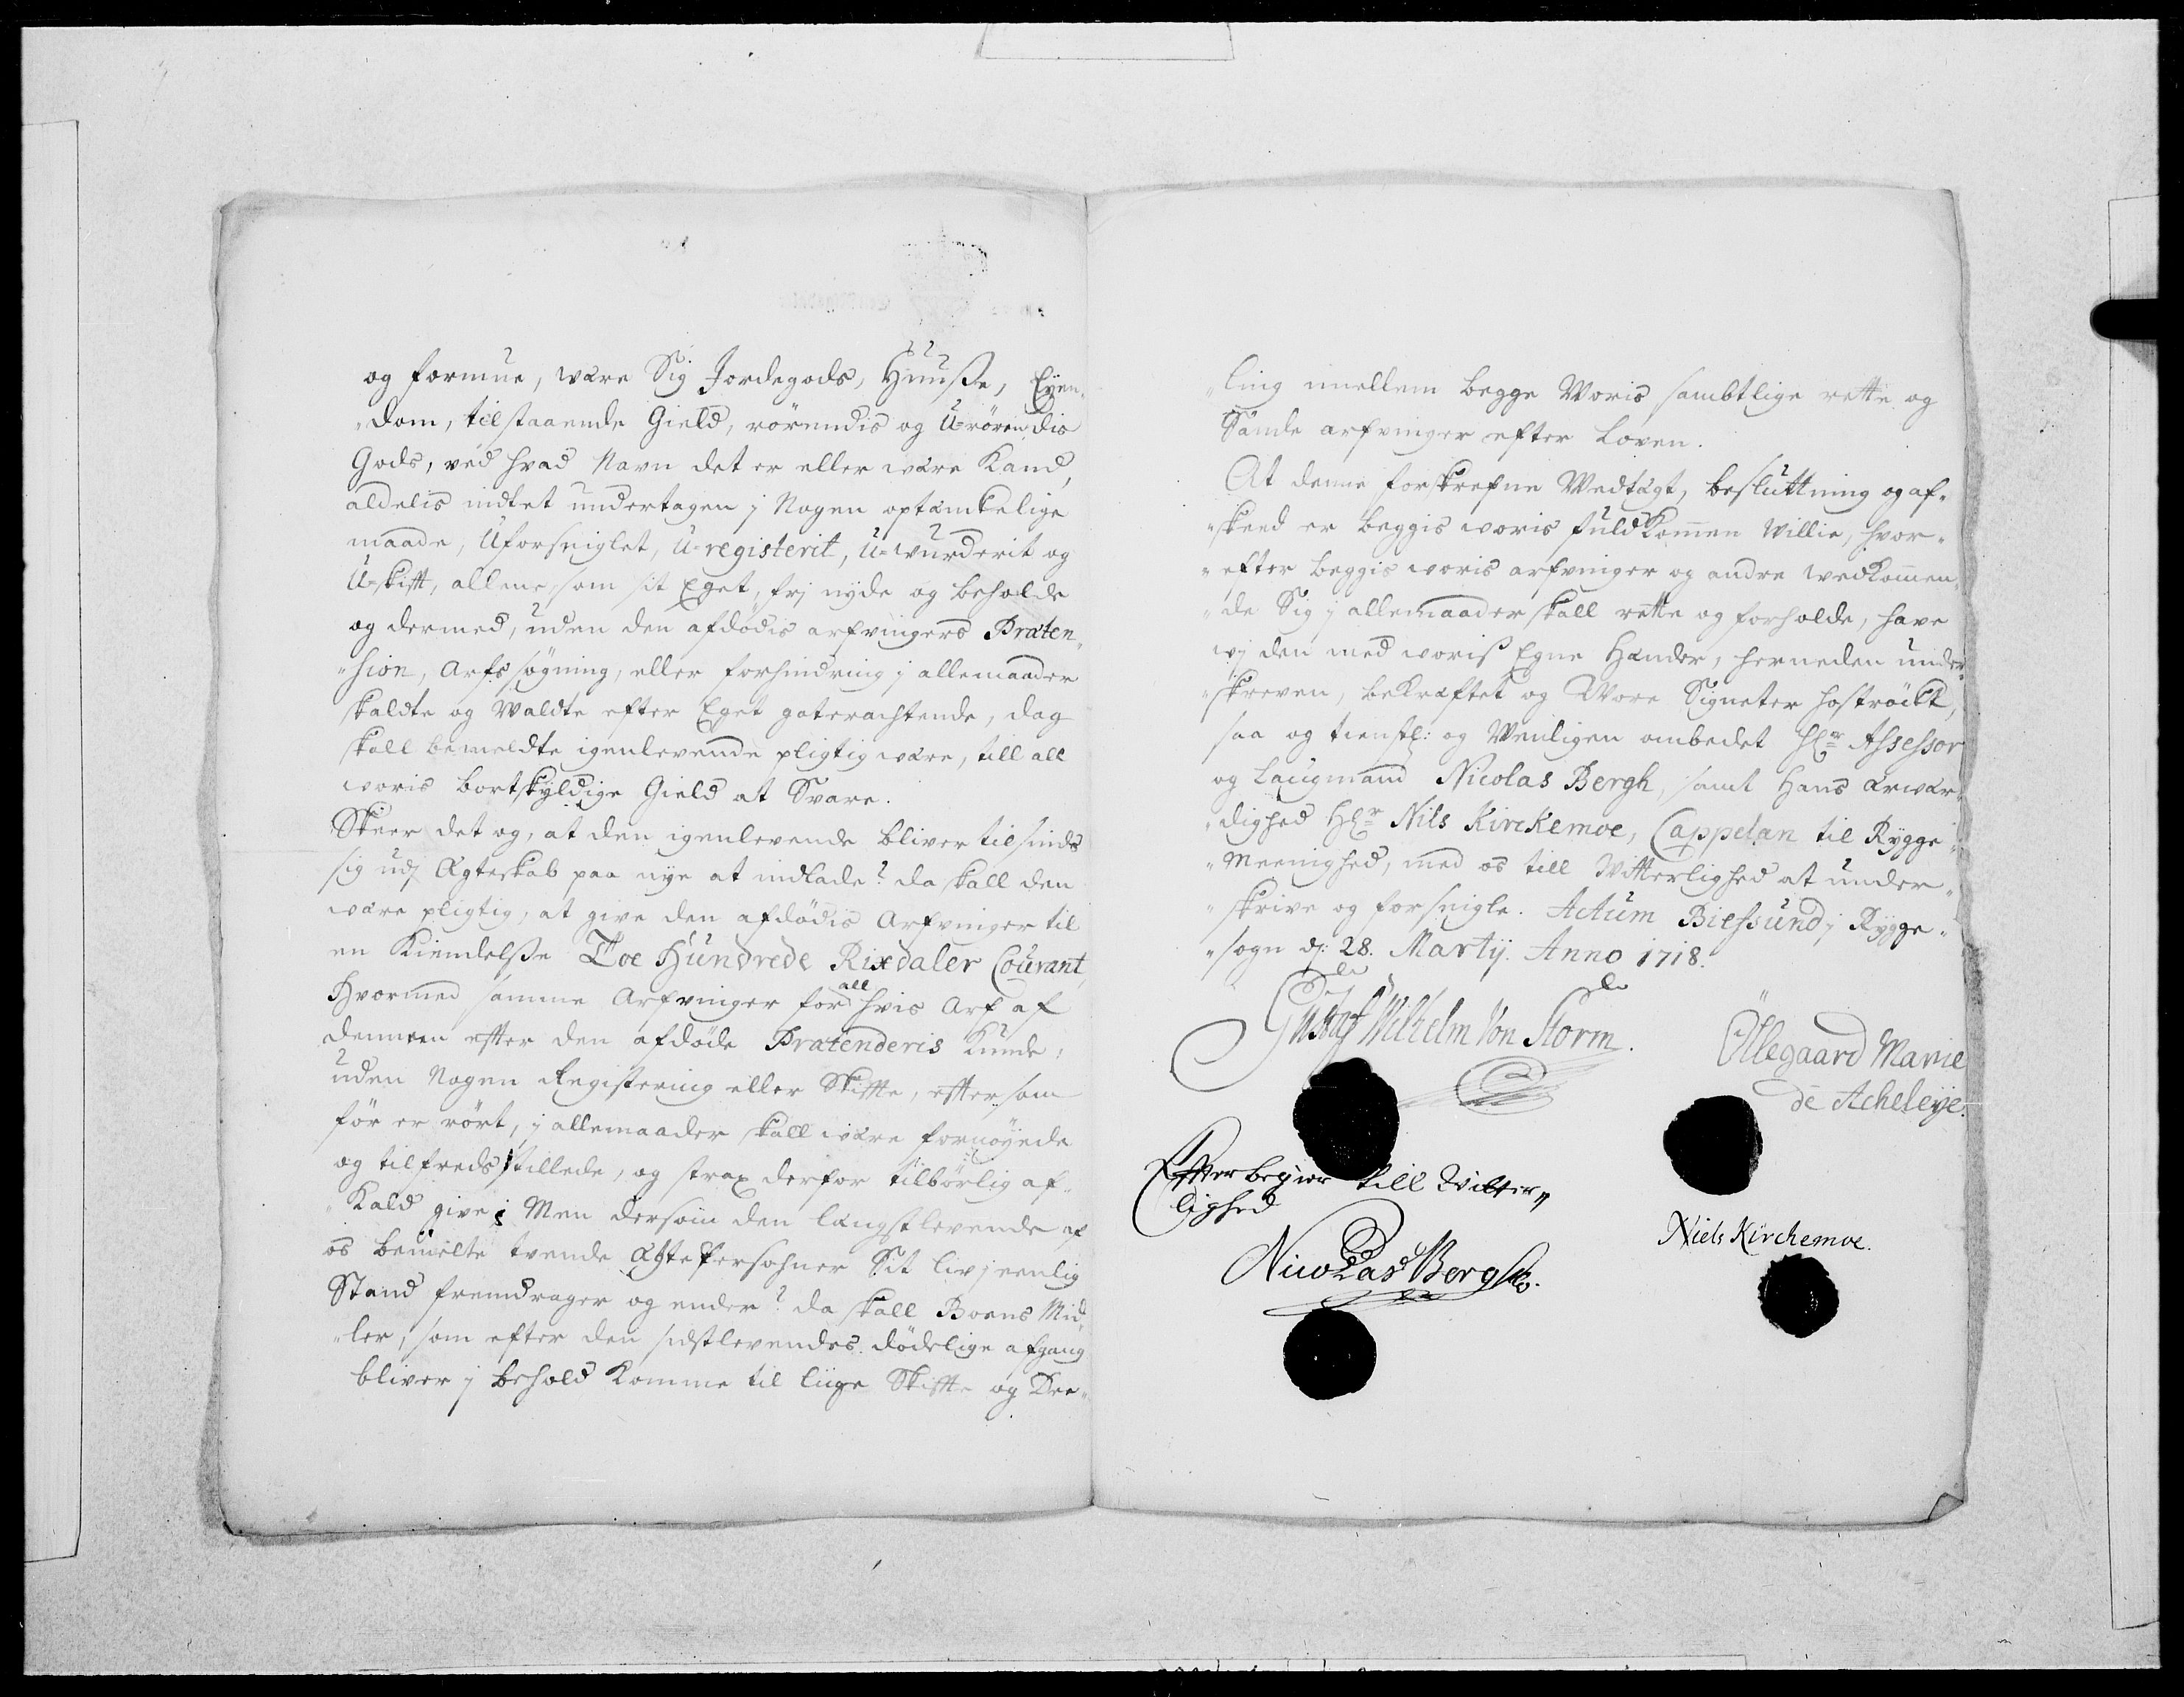 og formue, være Sig Jordegods, Huuße, Eÿen„
„dom, tilstaaende Gield, rörendis og U-rörendis
Gods, ved hvad Navn det er eller være Kand,
aldelis indtet undertagen j Nogen optænkelige
maade, Uforseiglet, U-registerit, U-wurderit og
U-skift, allene som sit Eget, frj nyde og beholde
og dermed, uden den afdödis arfvingers Præten„
„sion, Arfs søgning, eller forhindring j allemaader
skaldte og Waldte efter Eget goterachtende, dog
skall bemeldte igenlevende pligtig være, till all
voris bortskyldige Gield at Svare.
Skeer det og, at den igenlevende bliver tilsinds
sig udj Ægteskab paa nye at indlade? da skall den
være pligtig, at give den afdödis Arfvinger til
en Kiendelße Toe Hundrede Rixdaler Courant,
Hvormed samme Arfvinger for all hvis Arf af
dennem efter den afdöde Prætenderis kunde,
uden Nogen Registering eller Skifte, eftersom
för er rört, j allemaader skall være fornöÿede
og tilfreds stillede, og strax derfor tilbörlig af„
„Kald give; Men dersom den længstlevende af
os bemelte tvende Ægte Persohner Sit liv j eenlig
Stand fremdrager og ender? da skall Boens Mid„
„ler, som efter den sidstlevendes dödelige afgang
bliver j behold komme til liige Skifte og Dee„
„ling imellem begge Woris samtlige rette og
Sande arfvinger efter Loven.
At denne forskrefne Wedtægt, besluttning og af„
„skeed er beggis woris fuldkommen Willie, hvor„
„efter beggis woris arfvinger og andre wedkommen„
„de Sig j allemaader skall rette og forholde, have
vj den med woriß Egne Hænder, herneden under„
„skreven, bekræftet og Wore Signeter hostrÿckt,
saa og tienstl: og Wenligen ombedet Hr Assessor
og Laugmand Nicolas Bergh, samt Hans Ærvær„
„dighed Hr Nils Kirckemoe, Cappelan til Rygge
„Meenighed, med os till Witterlighed at under„
„skrive og forseigle. Actum Biefsund j Rygge„
„sogn d: 28. Martij. Anno 1718.
Gustaf Wilhelm Von Storm.
Öllegaard Marie
de Acheleÿe.
Efter begier till Witter„
lighed
Nicolas Bergh.
Niels Kirchemoe.